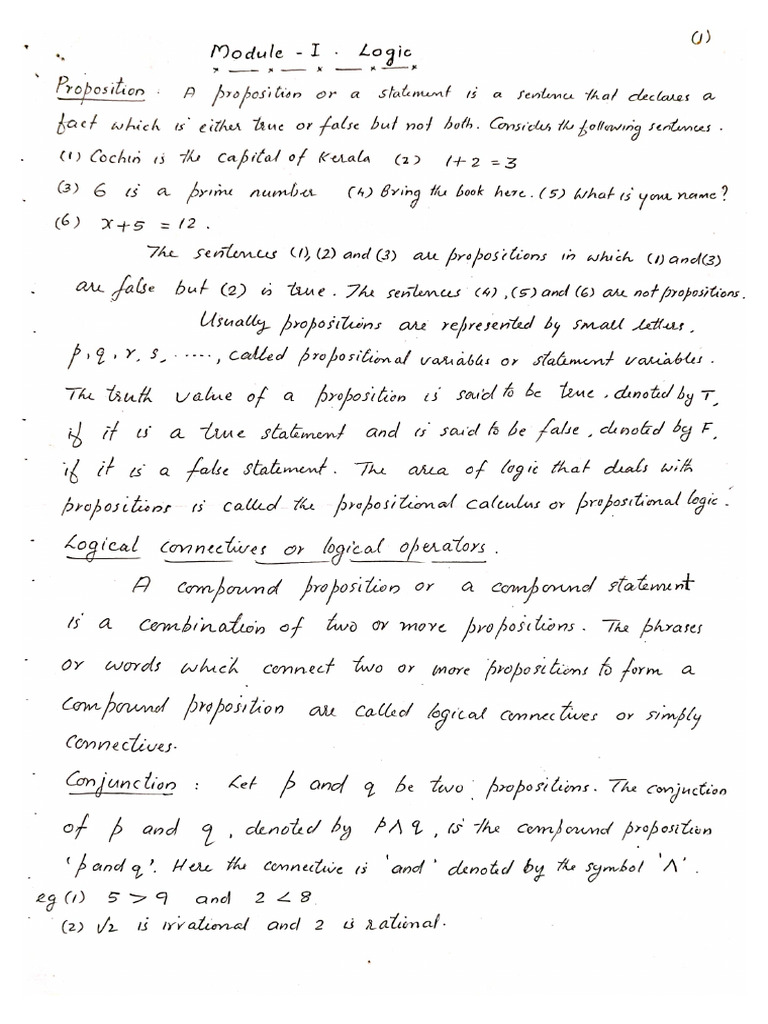 (1)
Module - I . Logic
Proposition . A proposition or a statement is a sentence that declares a
fact which is either true or false but not both. Consider the following sentences .
(1) Cochin is the capital of Kerala (2) 1+2 = 3
(3) 6 is a prime number (4) Bring the book here. (5) What is your name?
(6) x+5 = 12 .
The sentences (1), (2) and (3) are propositions in which (1) and (3)
are false but (2) is true . The sentences (4) , (5) and (6) are not propositions.
Usually propositions are represented by small letters,
p, q, r, s, ....., called propositional variables or statement variables .
The truth value of a proposition is said to be true , denoted by T,
if it is a true statement and is said to be false , denoted by F,
if it is a false statement . The area of logic that deals with
propositions is called the propositional calculus or propositional logic .
Logical connectives or logical operators .
A compound proposition or a compound statement
is a combination of two or more propositions . The phrases
or words which connect two or more propositions to form a
compound proposition are called logical connectives or simply
connectives.
Conjunction : Let p and q be two propositions . The conjuction
of p and q , denoted by p∧q , is the compound proposition
'p and q'. Here the connective is 'and' denoted by the symbol '∧' .
eg (1) 5 > 9 and 2 < 8
(2) √2 is irrational and 2 is rational.